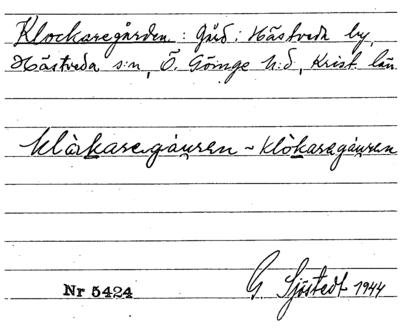 Klockaregården: Gård: Hästveda by,
Hästveda s:n, Ö. Göinge h:d, Krist. län.
klåkaregåuren ~ klòkaregåuren
Nr 5424
G. Sjöstedt 1944